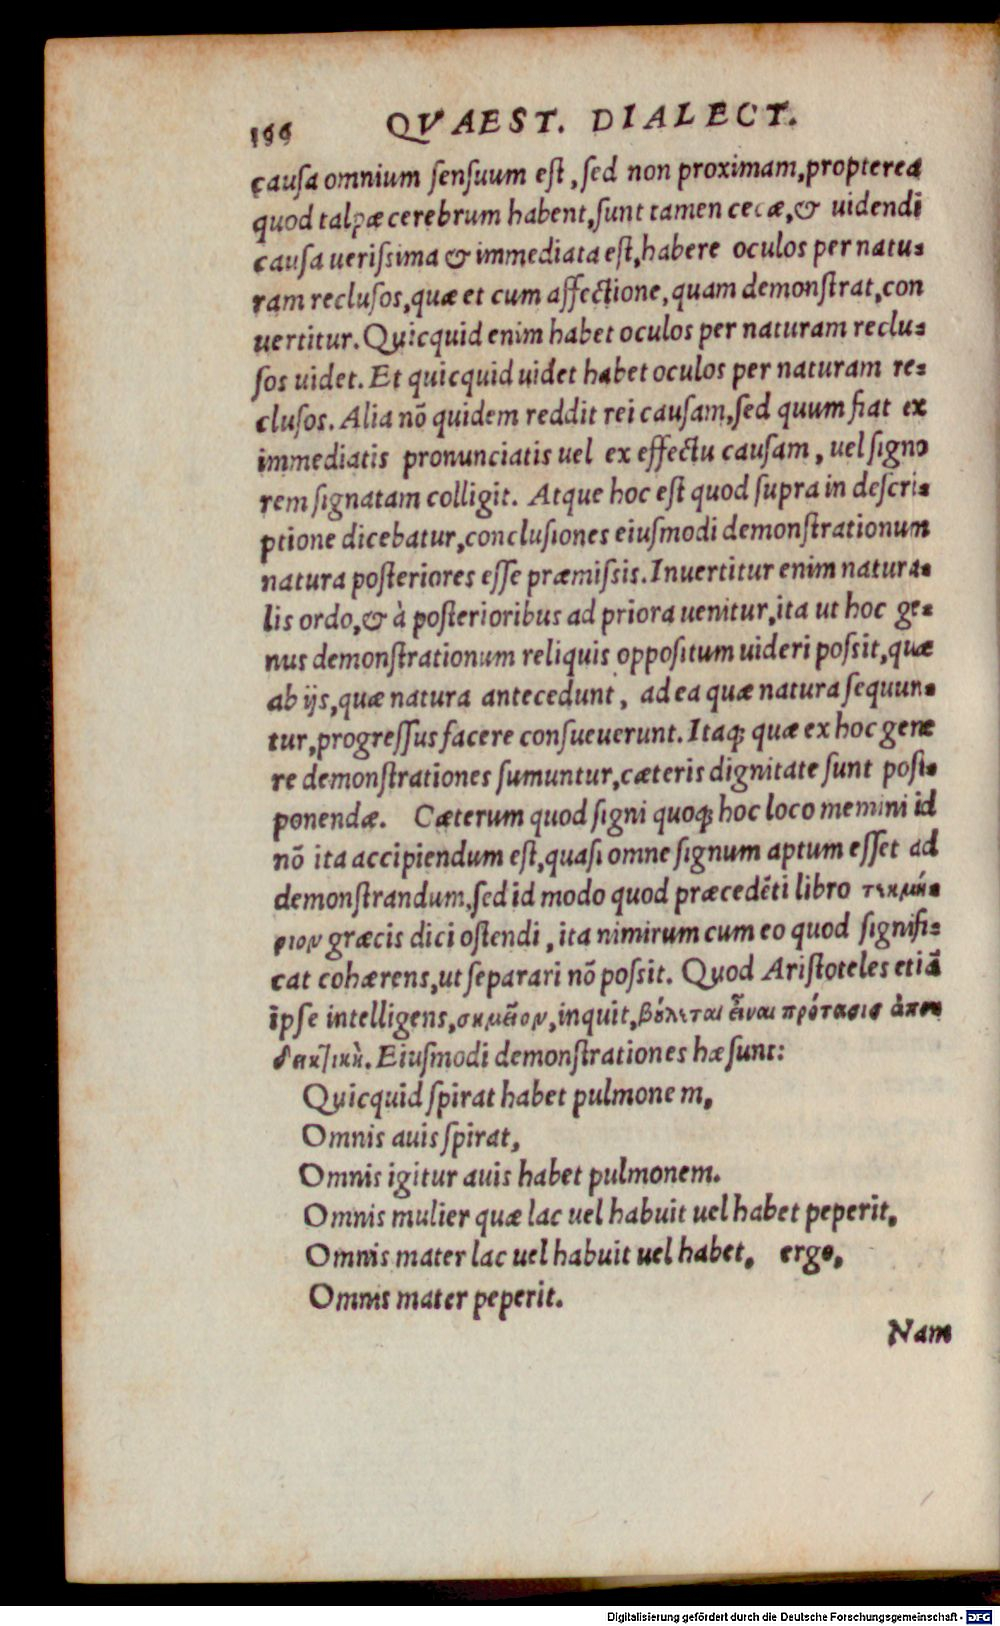 166 QVAEST. DIALECT.
causa omnium sensuum est, sed non proximam, propterea
quod talpæ cerebrum habent, sunt tamen cecæ, & uidendi
causa uerissima & immediata est, habere oculos per natu-
ram reclusos, quæ et cum affectione, quam demonstrat, con
uertitur. Quicquid enim habet oculos per naturam reclu-
sos uidet. Et quicquid uidet habet oculos per naturam re-
clusos. Alia nõ quidem reddit rei causam, sed quum fiat ex
immediatis pronunciatis uel ex effectu causam, uel signo
rem signatam colligit. Atque hoc est quod supra in descri-
ptione dicebatur, conclusiones eiusmodi demonstrationum
natura posteriores esse præmissis. Inuertitur enim natura-
lis ordo, & à posterioribus ad priora uenitur, ita ut hoc ge-
nus demonstrationum reliquis oppositum uideri possit, quæ
ab ijs, quæ natura antecedunt, ad ea quæ natura sequun-
tur, progressus facere consueuerunt. Itaq; quæ ex hoc gene
re demonstrationes sumuntur, cæteris dignitate sunt post-
ponendæ. Cæterum quod signi quoq; hoc loco memini id
nõ ita accipiendum est, quasi omne signum aptum esset ad
demonstrandum, sed id modo quod præcedẽti libro τεκμή-
ριον græcis dici ostendi, ita nimirum cum eo quod signifi-
cat cohærens, ut separari nõ possit. Quod Aristoteles etiã
ipse intelligens, σημεῖον, inquit, βούλεται εἶναι πρότασις ἀπο
δεικτικὴ. Eiusmodi demonstrationes hæ sunt:
Quicquid spirat habet pulmonem,
Omnis auis spirat,
Omnis igitur auis habet pulmonem.
Omnis mulier quæ lac uel habuit uel habet peperit,
Omnis mater lac uel habuit uel habet, ergo,
Omnis mater peperit.
Nam
Digitalisierung gefördert durch die Deutsche Forschungsgemeinschaft - DFG